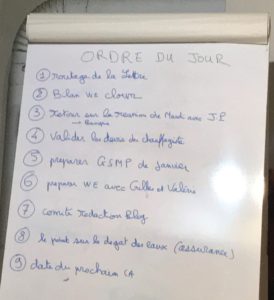 ORDRE DU JOUR
① routage de la Lettre
② Bilan WE clown
③ Retour sur la réunion de Mardi avec J.P
→ Banque
④ Valider les devis du chauffagiste
⑤ préparer GSMP de Janvier
⑥ préparer WE avec Gilles et Valérie
⑦ comité Rédaction Blog
⑧ le point sur le dégat des eaux (assurance)
⑨ date du prochain CA